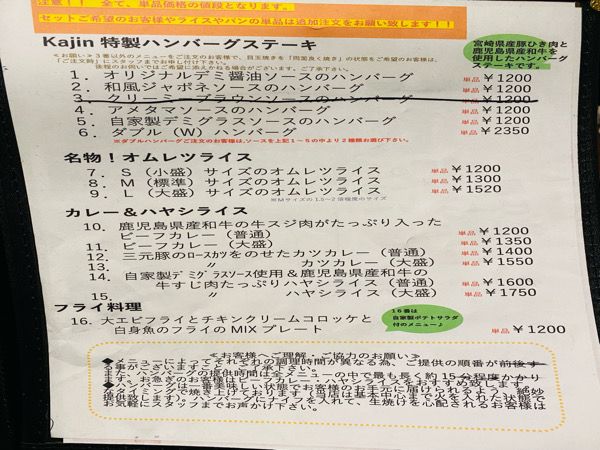 注意!! 全て、単品価格の値段となります。
セットご希望のお客様やライスやパンの単品は追加注文をお願い致します!!
Kajin 特製ハンバーグステーキ
宮崎県産豚ひき肉と
鹿児島県産和牛を
使用したハンバーグ
ステーキです。
1. オリジナルデミ醤油ソースのハンバーグ 単品 ¥1200
2. 和風ジャポネソースのハンバーグ 単品 ¥1200
3. クリーミーブラウンソースのハンバーグ 単品 ¥1200
4. アメタマソースのハンバーグ 単品 ¥1200
5. 自家製デミグラスソースのハンバーグ 単品 ¥1200
6. ダブル(W)ハンバーグ 単品 ¥2350
※ダブルハンバーグご注文のお客様は、ソースを上記1~5の中より2種類お選び下さい。
名物!オムレツライス
7. S(小盛)サイズのオムレツライス 単品 ¥1200
8. M(標準)サイズのオムレツライス 単品 ¥1300
9. L(大盛)サイズのオムレツライス 単品 ¥1520
※Mサイズの1.5~2倍程度のサイズ
カレー&ハヤシライス
10. 鹿児島県産和牛の牛スジ肉がたっぷり入った
ビーフカレー(普通) 単品 ¥1200
11. ビーフカレー(大盛) 単品 ¥1350
12. 三元豚のロースカツをのせたカツカレー(普通) 単品 ¥1400
13. 〃 カツカレー(大盛) 単品 ¥1550
14. 自家製デミグラスソース使用&鹿児島県産和牛の
牛すじ肉たっぷりハヤシライス(普通) 単品 ¥1600
15. 〃 ハヤシライス(大盛) 単品 ¥1750
フライ料理
16. 大エビフライとチキンクリームコロッケと
白身魚のフライのMIXプレート 単品 ¥1200
16番は
自家製ポテトサラダ
付のメニュー♪
≪お客様へご理解、ご協力のお願い≫
●メニューによってそれぞれの調理時間が異なる為、ご提供の順番が前後す